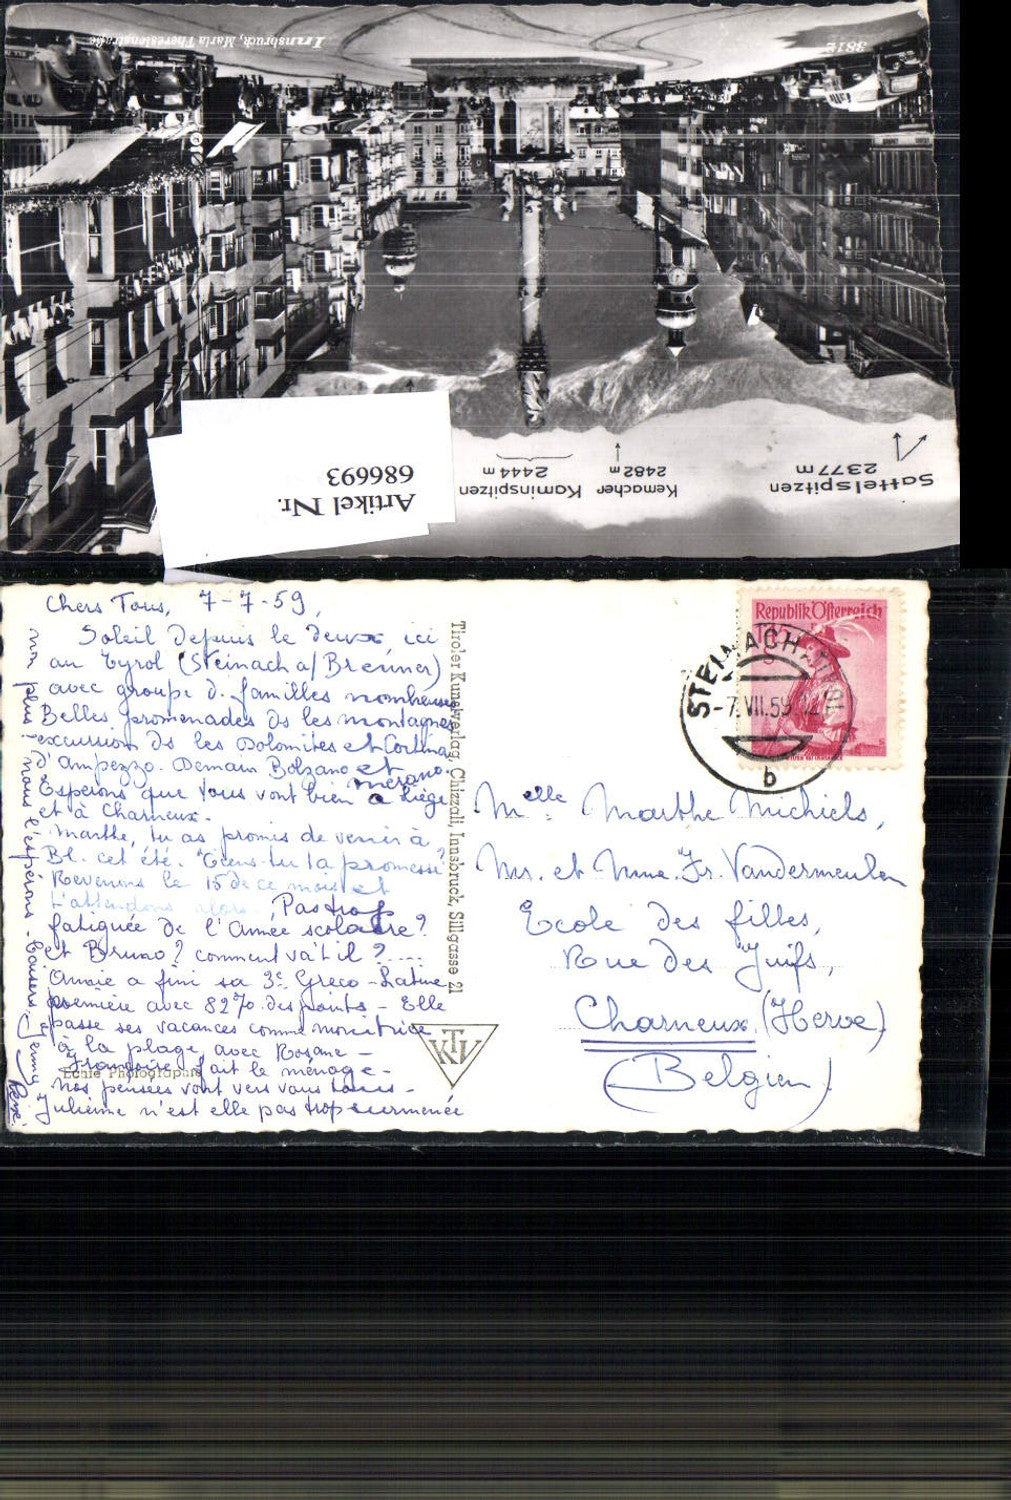 Innsbruck, Maria Theresienstraße
3812
Sattelspitzen
2377 m
Kemacher
2482 m
Kaminspitzen
2444 m
Artikel Nr.
686693
Chers Tous, 7-7-59,
Soleil depuis le deux, ici
au Tyrol (Steinach a/Brenner)
avec groupe d. familles nombreuses
Belles promenades ds les montagnes,
excursion ds les Dolomites et Cortina
d'Ampezzo. Demain Bolzano et
Merano.
Espérons que tous vont bien à Liège
et à Charneux.
Marthe, tu as promis de venir à
Bl. cet été. Tiens-tu ta promesse?
Revenons le 15 de ce mois et
t'attendons alors. Pas trop
fatiguée de l'année scolaire?
et Bruno? comment va t'il?....
Annie a fini sa 3e Gréco-Latine
première avec 82% des points - Elle
passe ses vacances comme monitrice
à la plage, avec Rosane -
Françoise, fait le ménage -
Nos pensées vont vers vous tous -
Julienne n'est elle pas trop surmenée
non plus! nous l'espérons - baisers, Jenny &
René.
Echte Photographie
Tiroler Kunstverlag, Chizzali, Innsbruck, Sillgasse 21
KTV
Republik Österreich
STEINACH, TIROL
-7.VII.59-12
b
Melle Marthe Michiels,
Mr. et Mme. Fr. Vandermeulen
Ecole des filles,
Rue des Juifs,
Charneux. (Herve)
(Belgien)